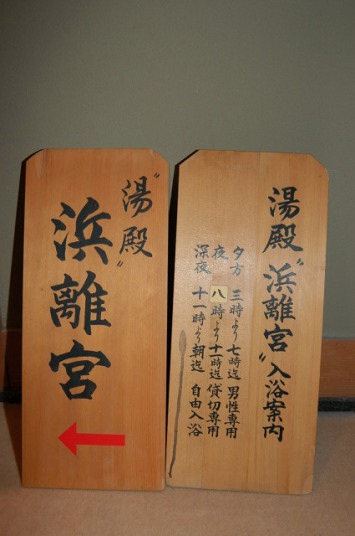 〝湯殿〟
浜離宮
湯殿〝浜離宮〟入浴案内
夕方 三時より七時迄 男性専用
夜 八時より十一時迄 貸切専用
深夜 十一時より朝迄 自由入浴